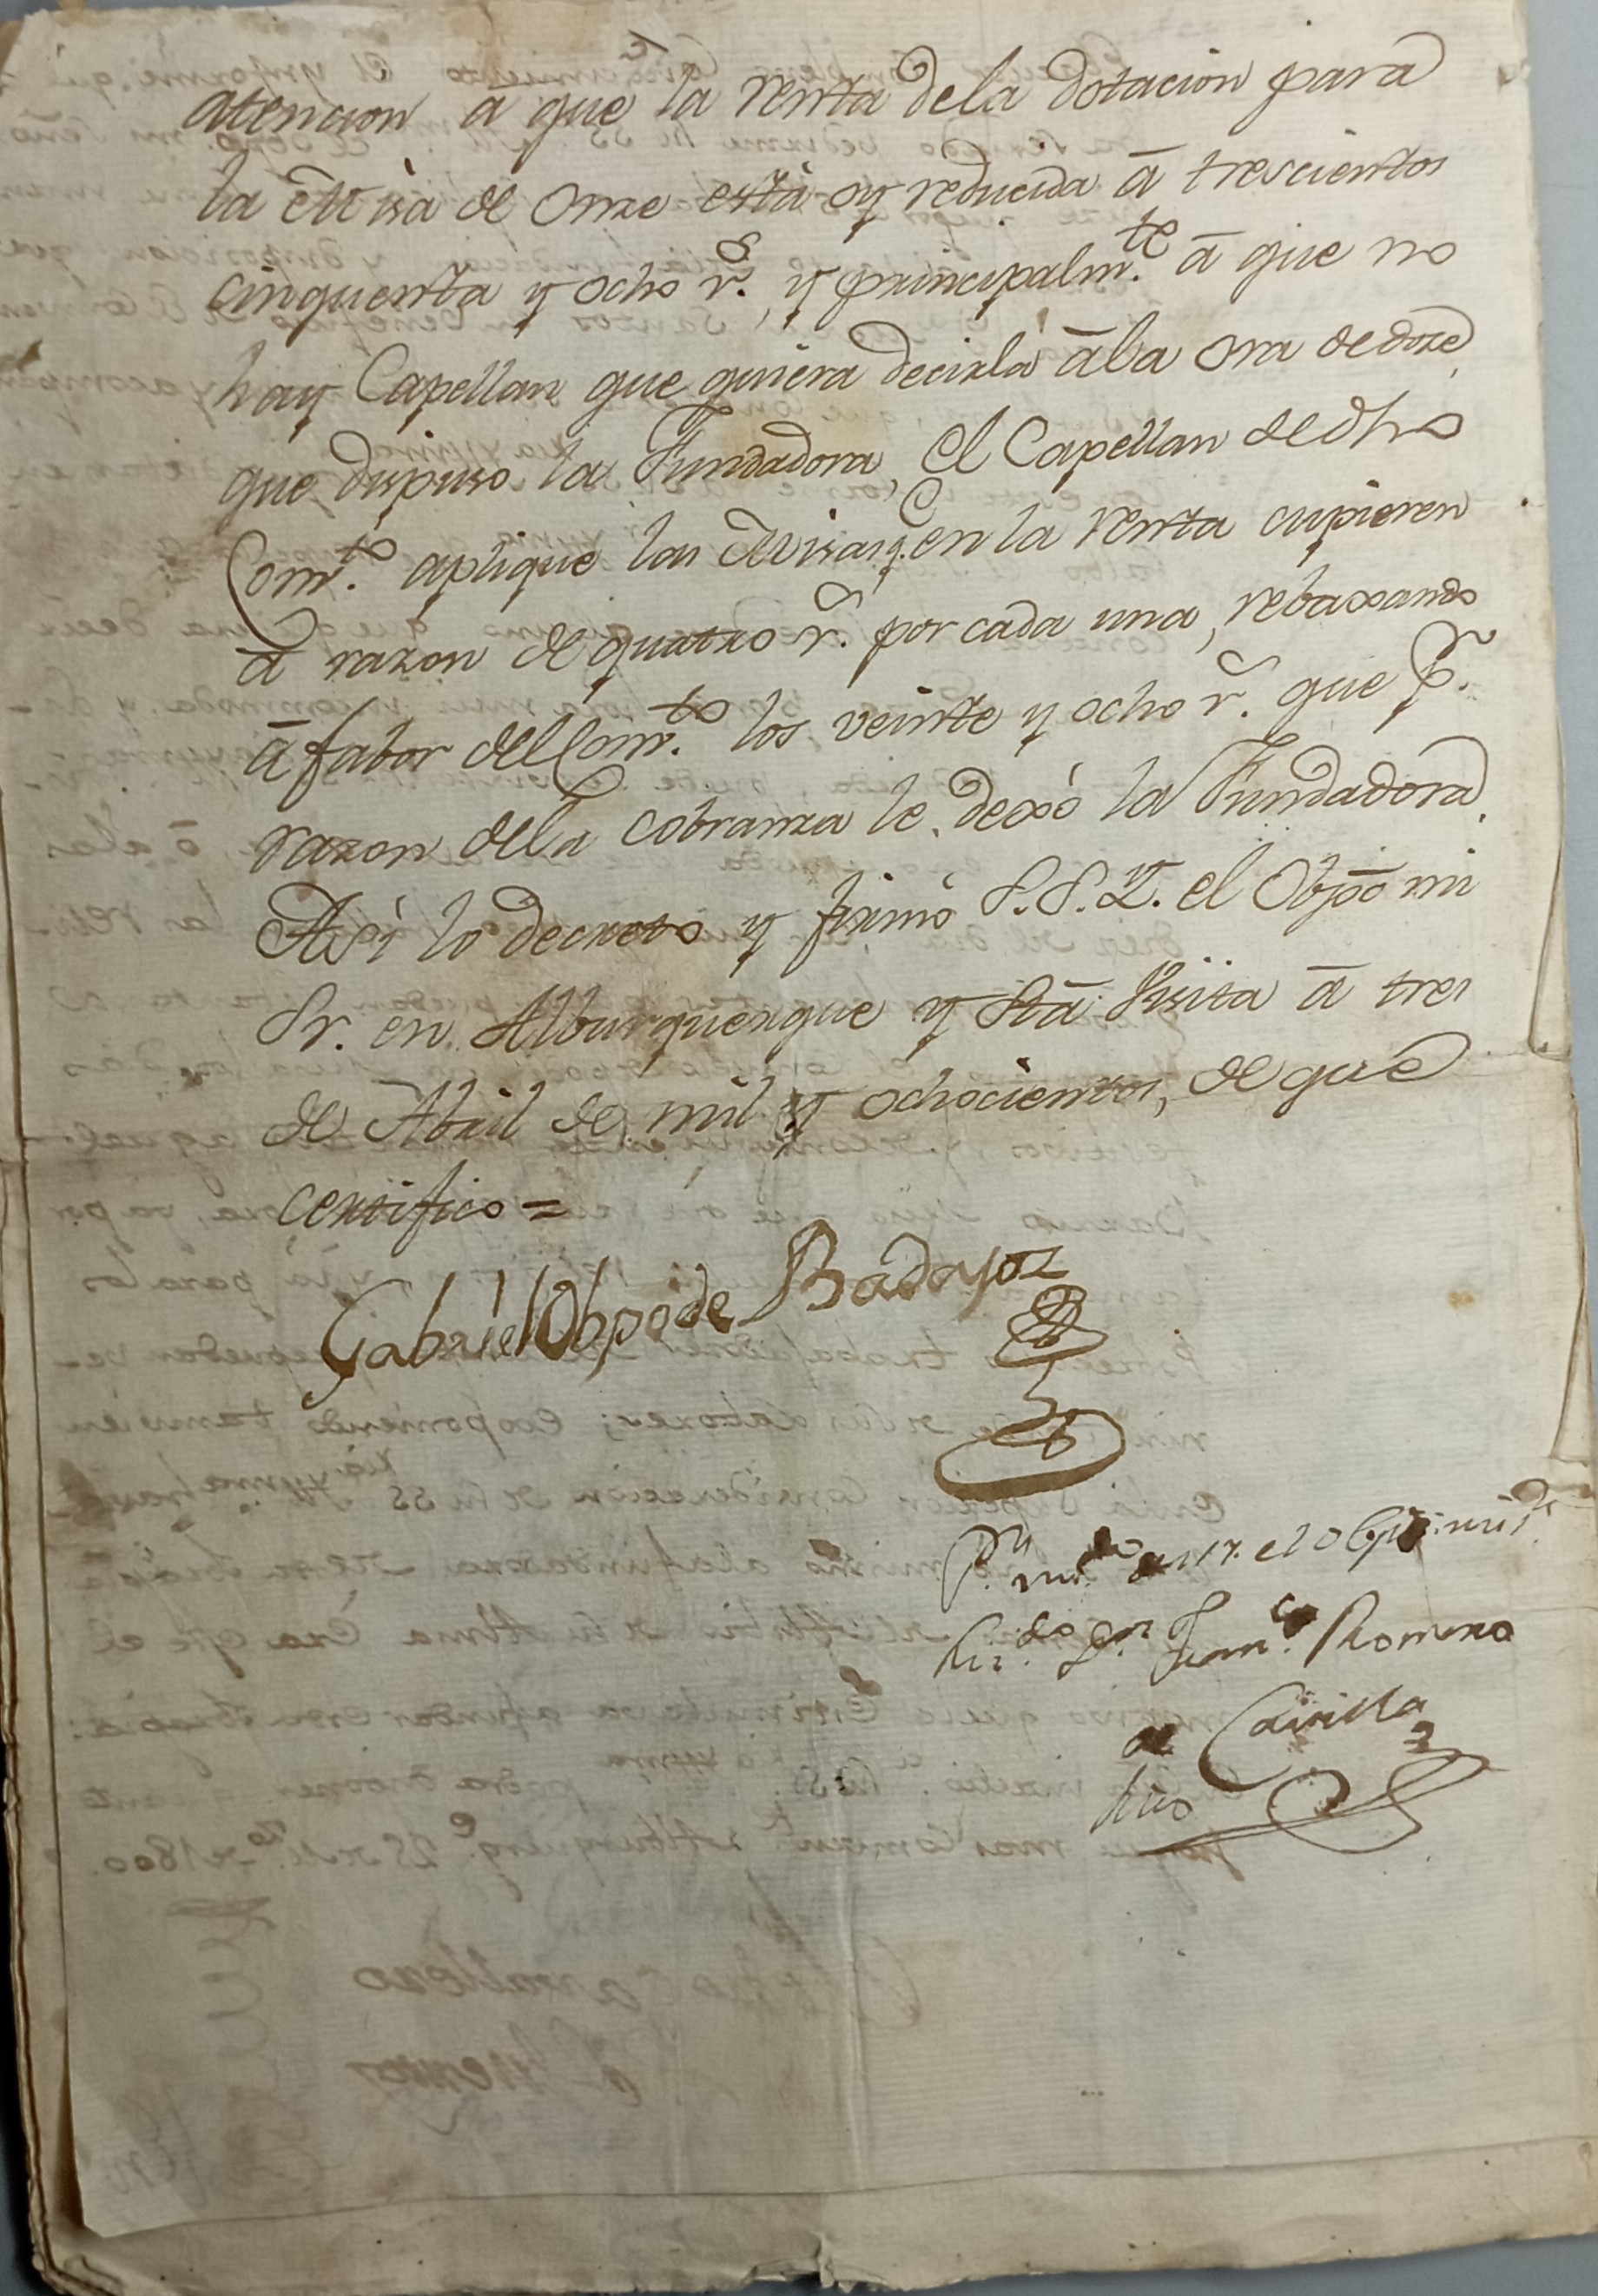 atencion a que la renta dela dotacion para
la Misa de Onze està oy reducida â trescientos
cinquenta y ocho r.s, y principalm.te â que no
hay Capellan que quiera decirla âla ora de doze,
que dispuso la Fundadora, el Capellan de dho
Com.to aplique las Misas q.e en la renta cupieren
â razon de quatro r.s por cada una, rebaxando
â fabor del Com.to los veinte y ocho r.s que p.r
razon dela cobranza le dexó la Fundadora.
Asi lo decretó y firmó S.S.Y. el Obpô mi
Sr. en Alburquerque y Stâ Visita â tres
de Abril de mil y ochocientos, de que
certifico =
Gabriel Obpo de Badajoz
P.r m.do de el Obpo mi S.r
Liz.do D.n Fran.co Romero
de Castilla
Srio